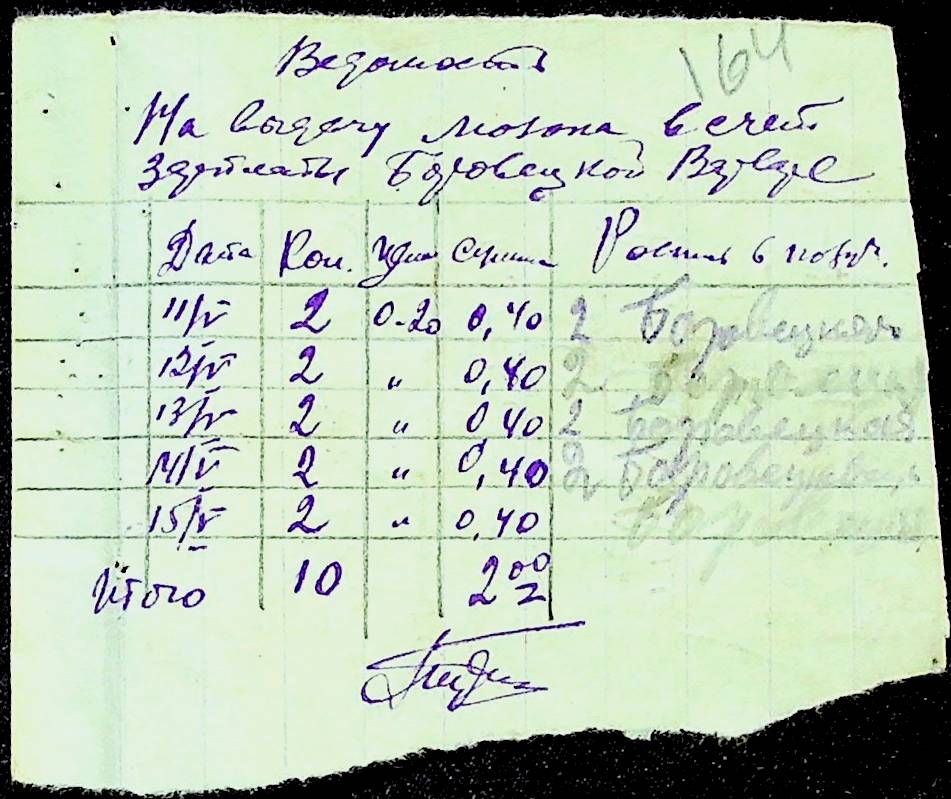 164
Ведомость
На выдачу молока в счет
зарплаты Боровецкой Варваре
Дата Кол. Цена Сумма Роспись в получ.
11/V 2 0-20 0,40 2 Боровецкая
12/V 2 " 0,40 2
13/V 2 " 0,40 2 Боровецкая
14/V 2 " 0,40 2 Боровецкая
15/V 2 " 0,40
Итого 10 2 00